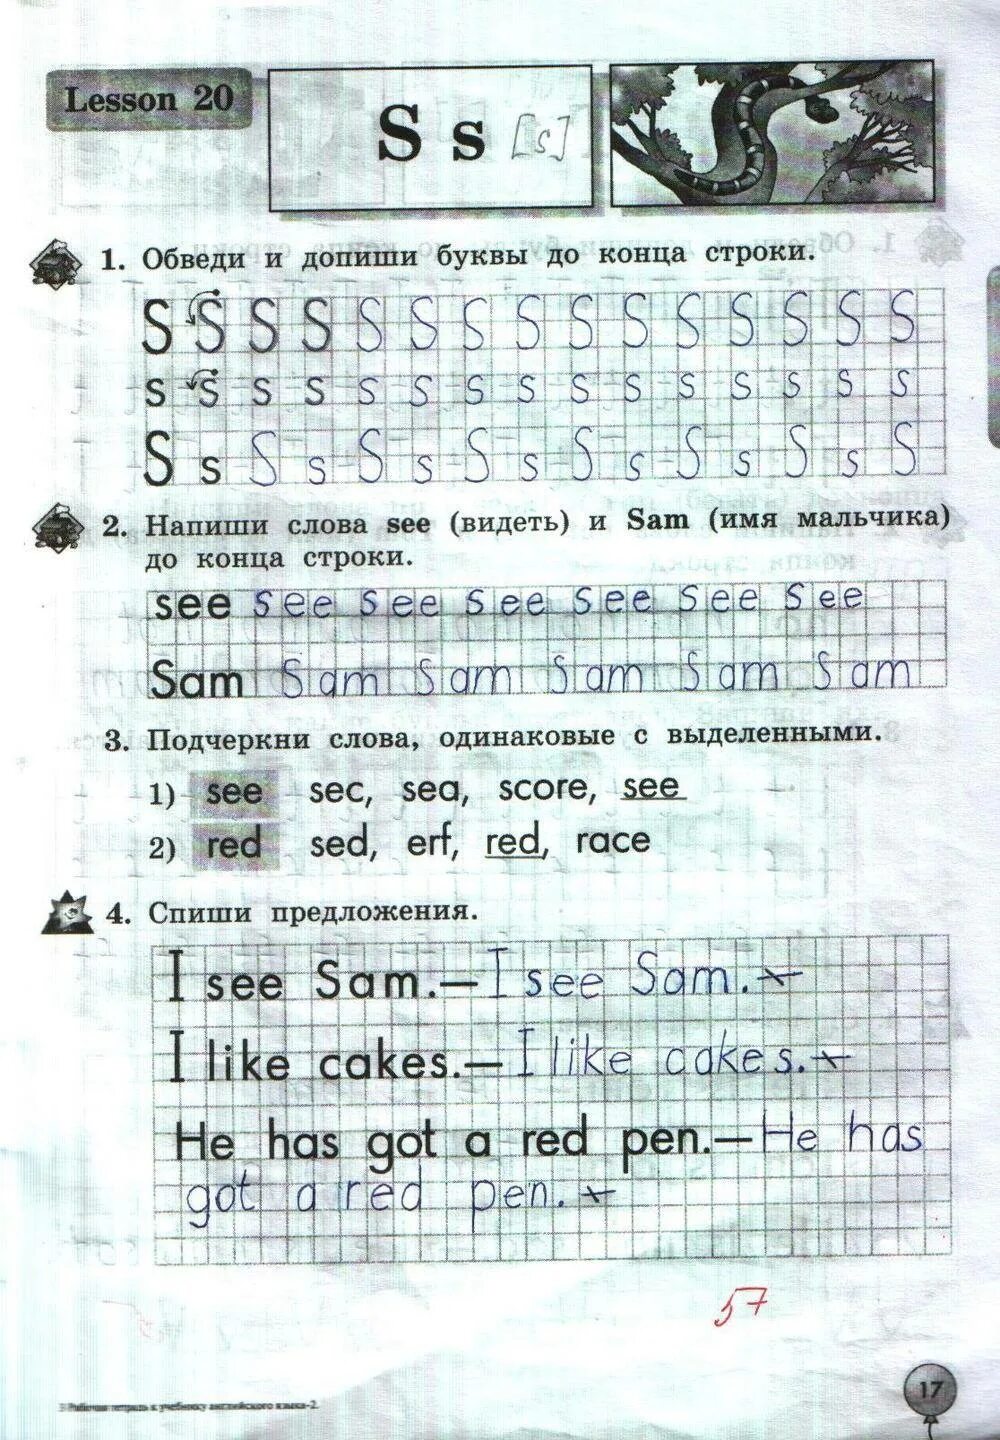 Lesson 20
S s [s]
1. Обведи и допиши буквы до конца строки.
S S S S S S S S S S S S S S S
s s s s s s s s s s s s s s s
S s S s S s S s S s S s S s S
2. Напиши слова see (видеть) и Sam (имя мальчика)
до конца строки.
see see see see see see see
Sam Sam Sam Sam Sam Sam
3. Подчеркни слова, одинаковые с выделенными.
1) see sec, sea, score, see
2) red sed, erf, red, race
4. Спиши предложения.
I see Sam.—I see Sam.
I like cakes.—I like cakes.
He has got a red pen.—He has
got a red pen.
3 Рабочая тетрадь к учебнику английского языка-2.
17